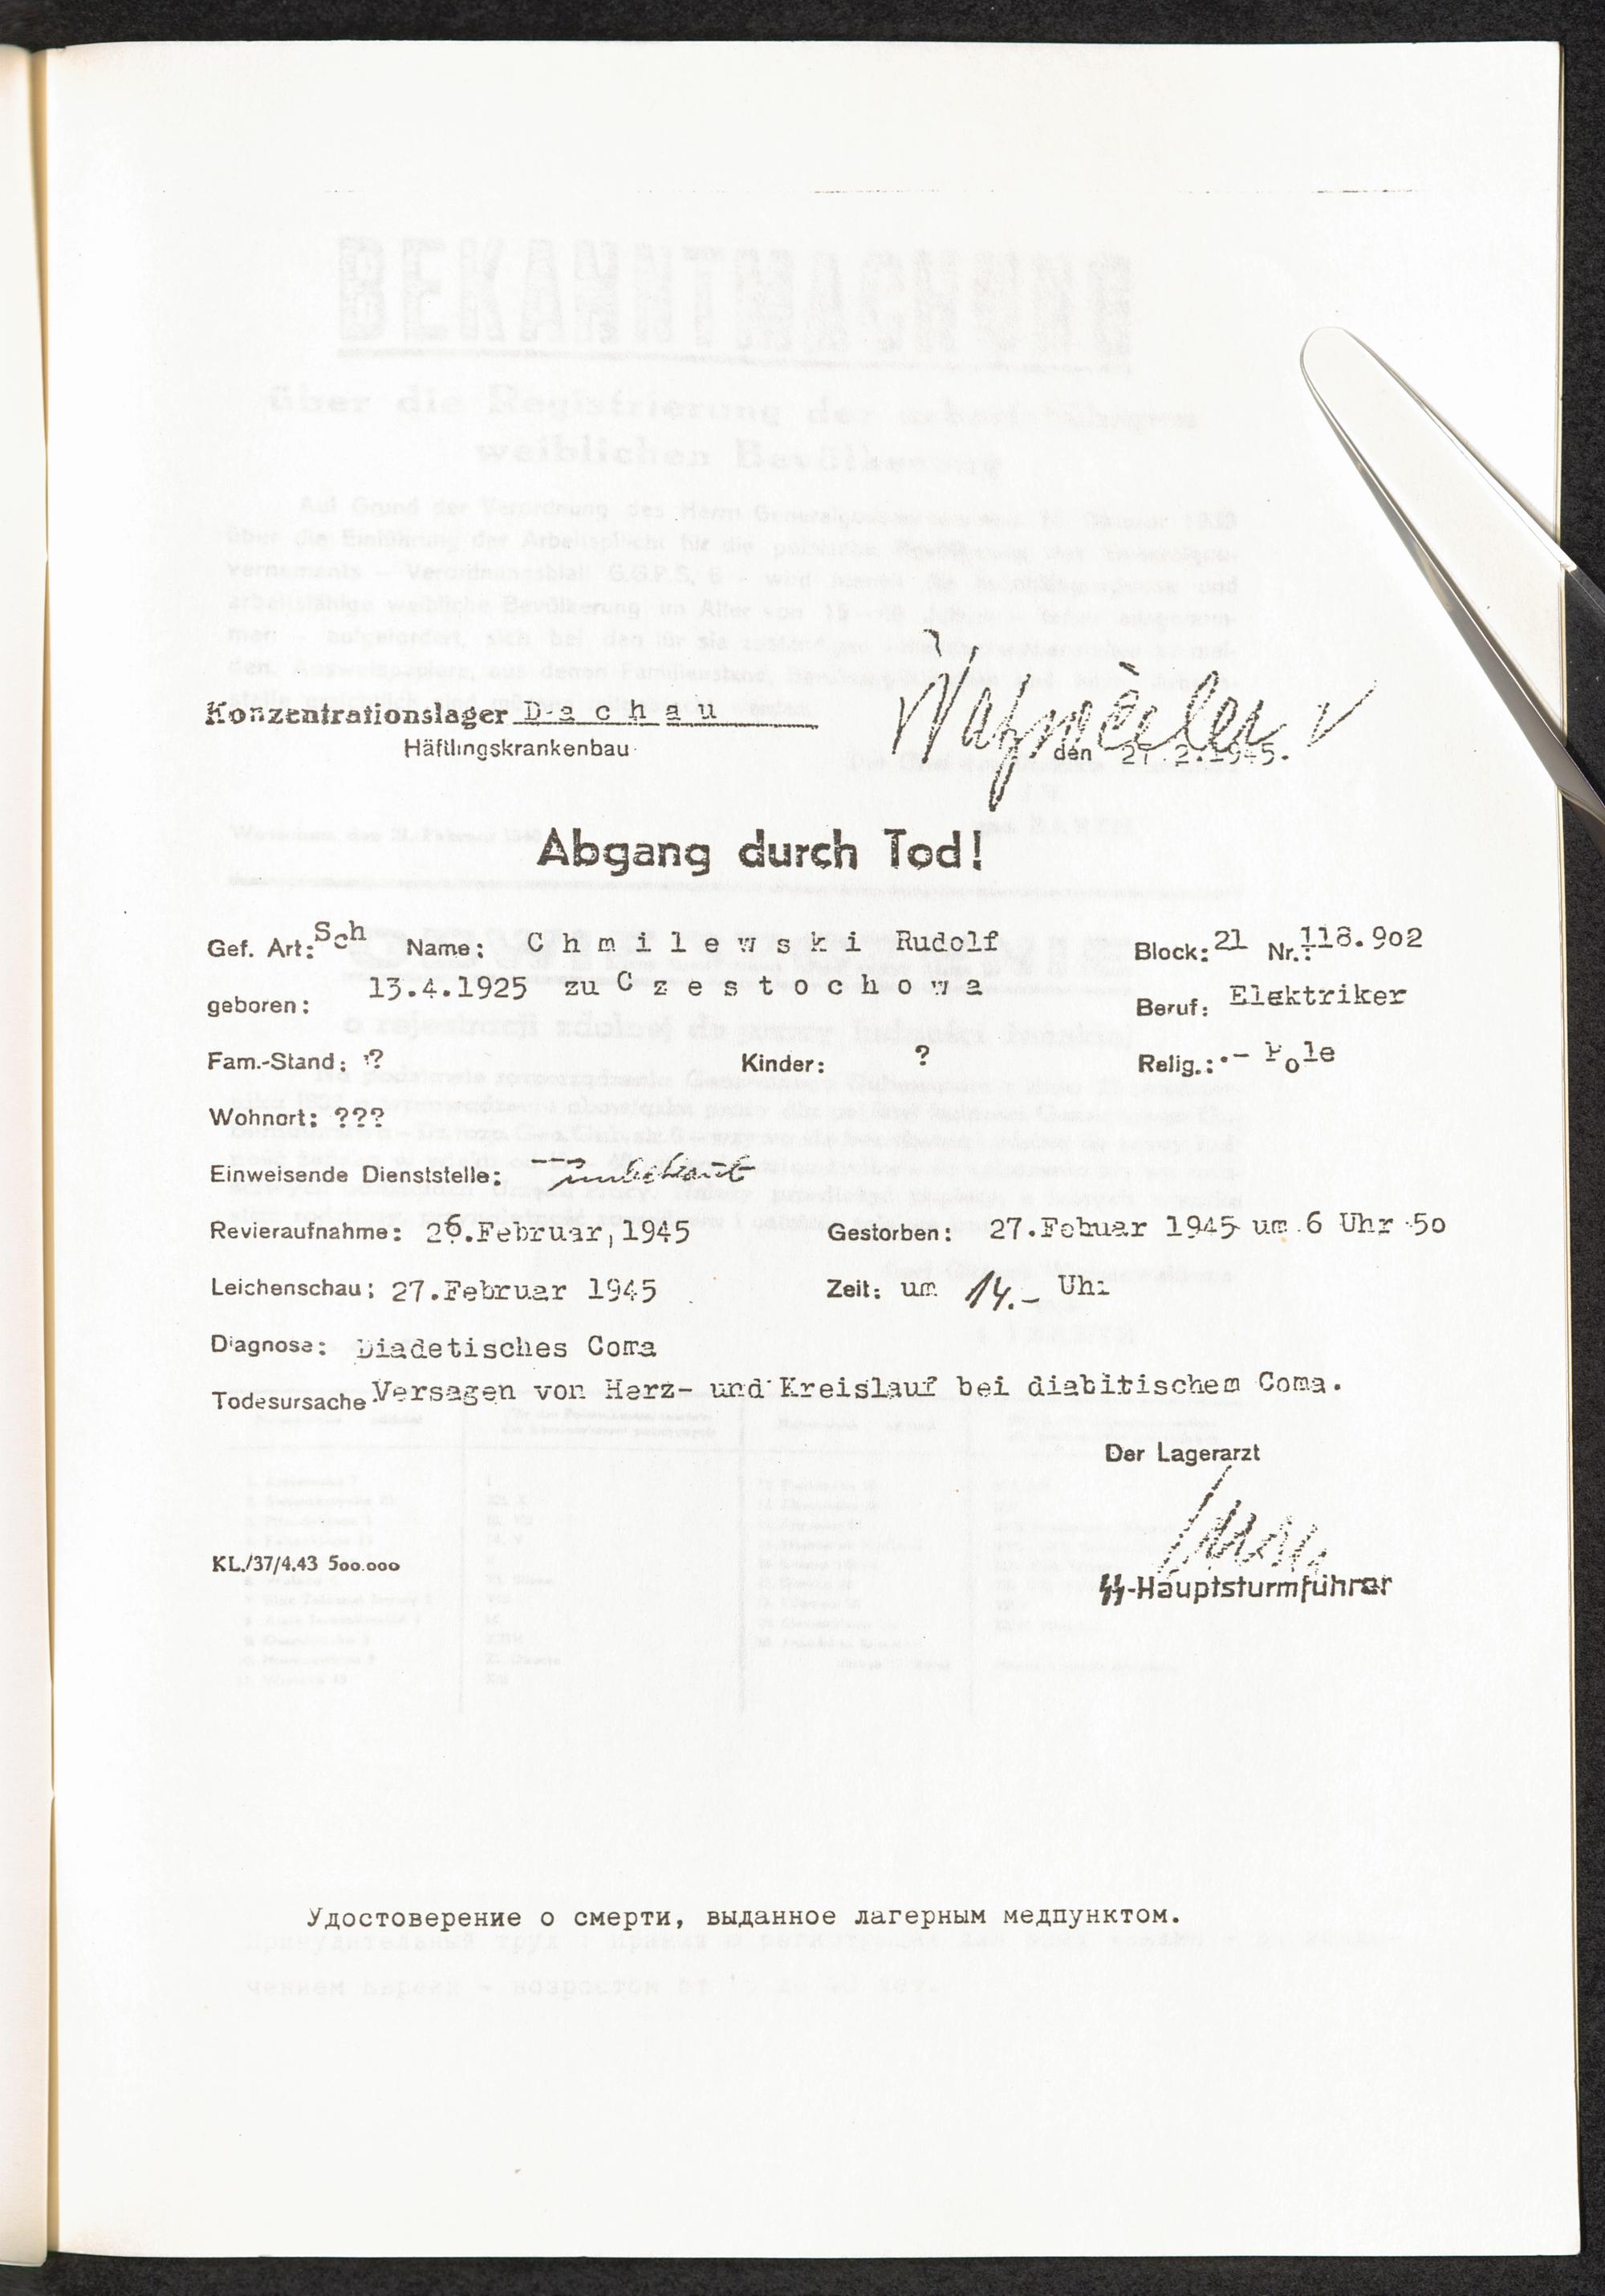 Konzentrationslager D a c h a u
Häftlingskrankenbau
Natzweiler
den 27.2.1945.
Abgang durch Tod!
Gef. Art: Sch Name: C h m i l e w s k i Rudolf Block: 21 Nr.: 118.902
geboren: 13.4.1925 zu C z e s t o c h o w a Beruf: Elektriker
Fam.-Stand: ? Kinder: ? Relig.: .- Pole
Wohnort: ???
Einweisende Dienststelle: --- unbekannt
Revieraufnahme: 26.Februar,1945 Gestorben: 27.Febuar 1945 um 6 Uhr 50
Leichenschau: 27.Februar 1945 Zeit: um 14.- Uhr
Diagnose: Diadetisches Coma
Todesursache Versagen von Herz- und Kreislauf bei diabitischem Coma.
Der Lagerarzt
SS-Hauptsturmführer
KL./37/4.43 500.000
Удостоверение о смерти, выданное лагерным медпунктом.